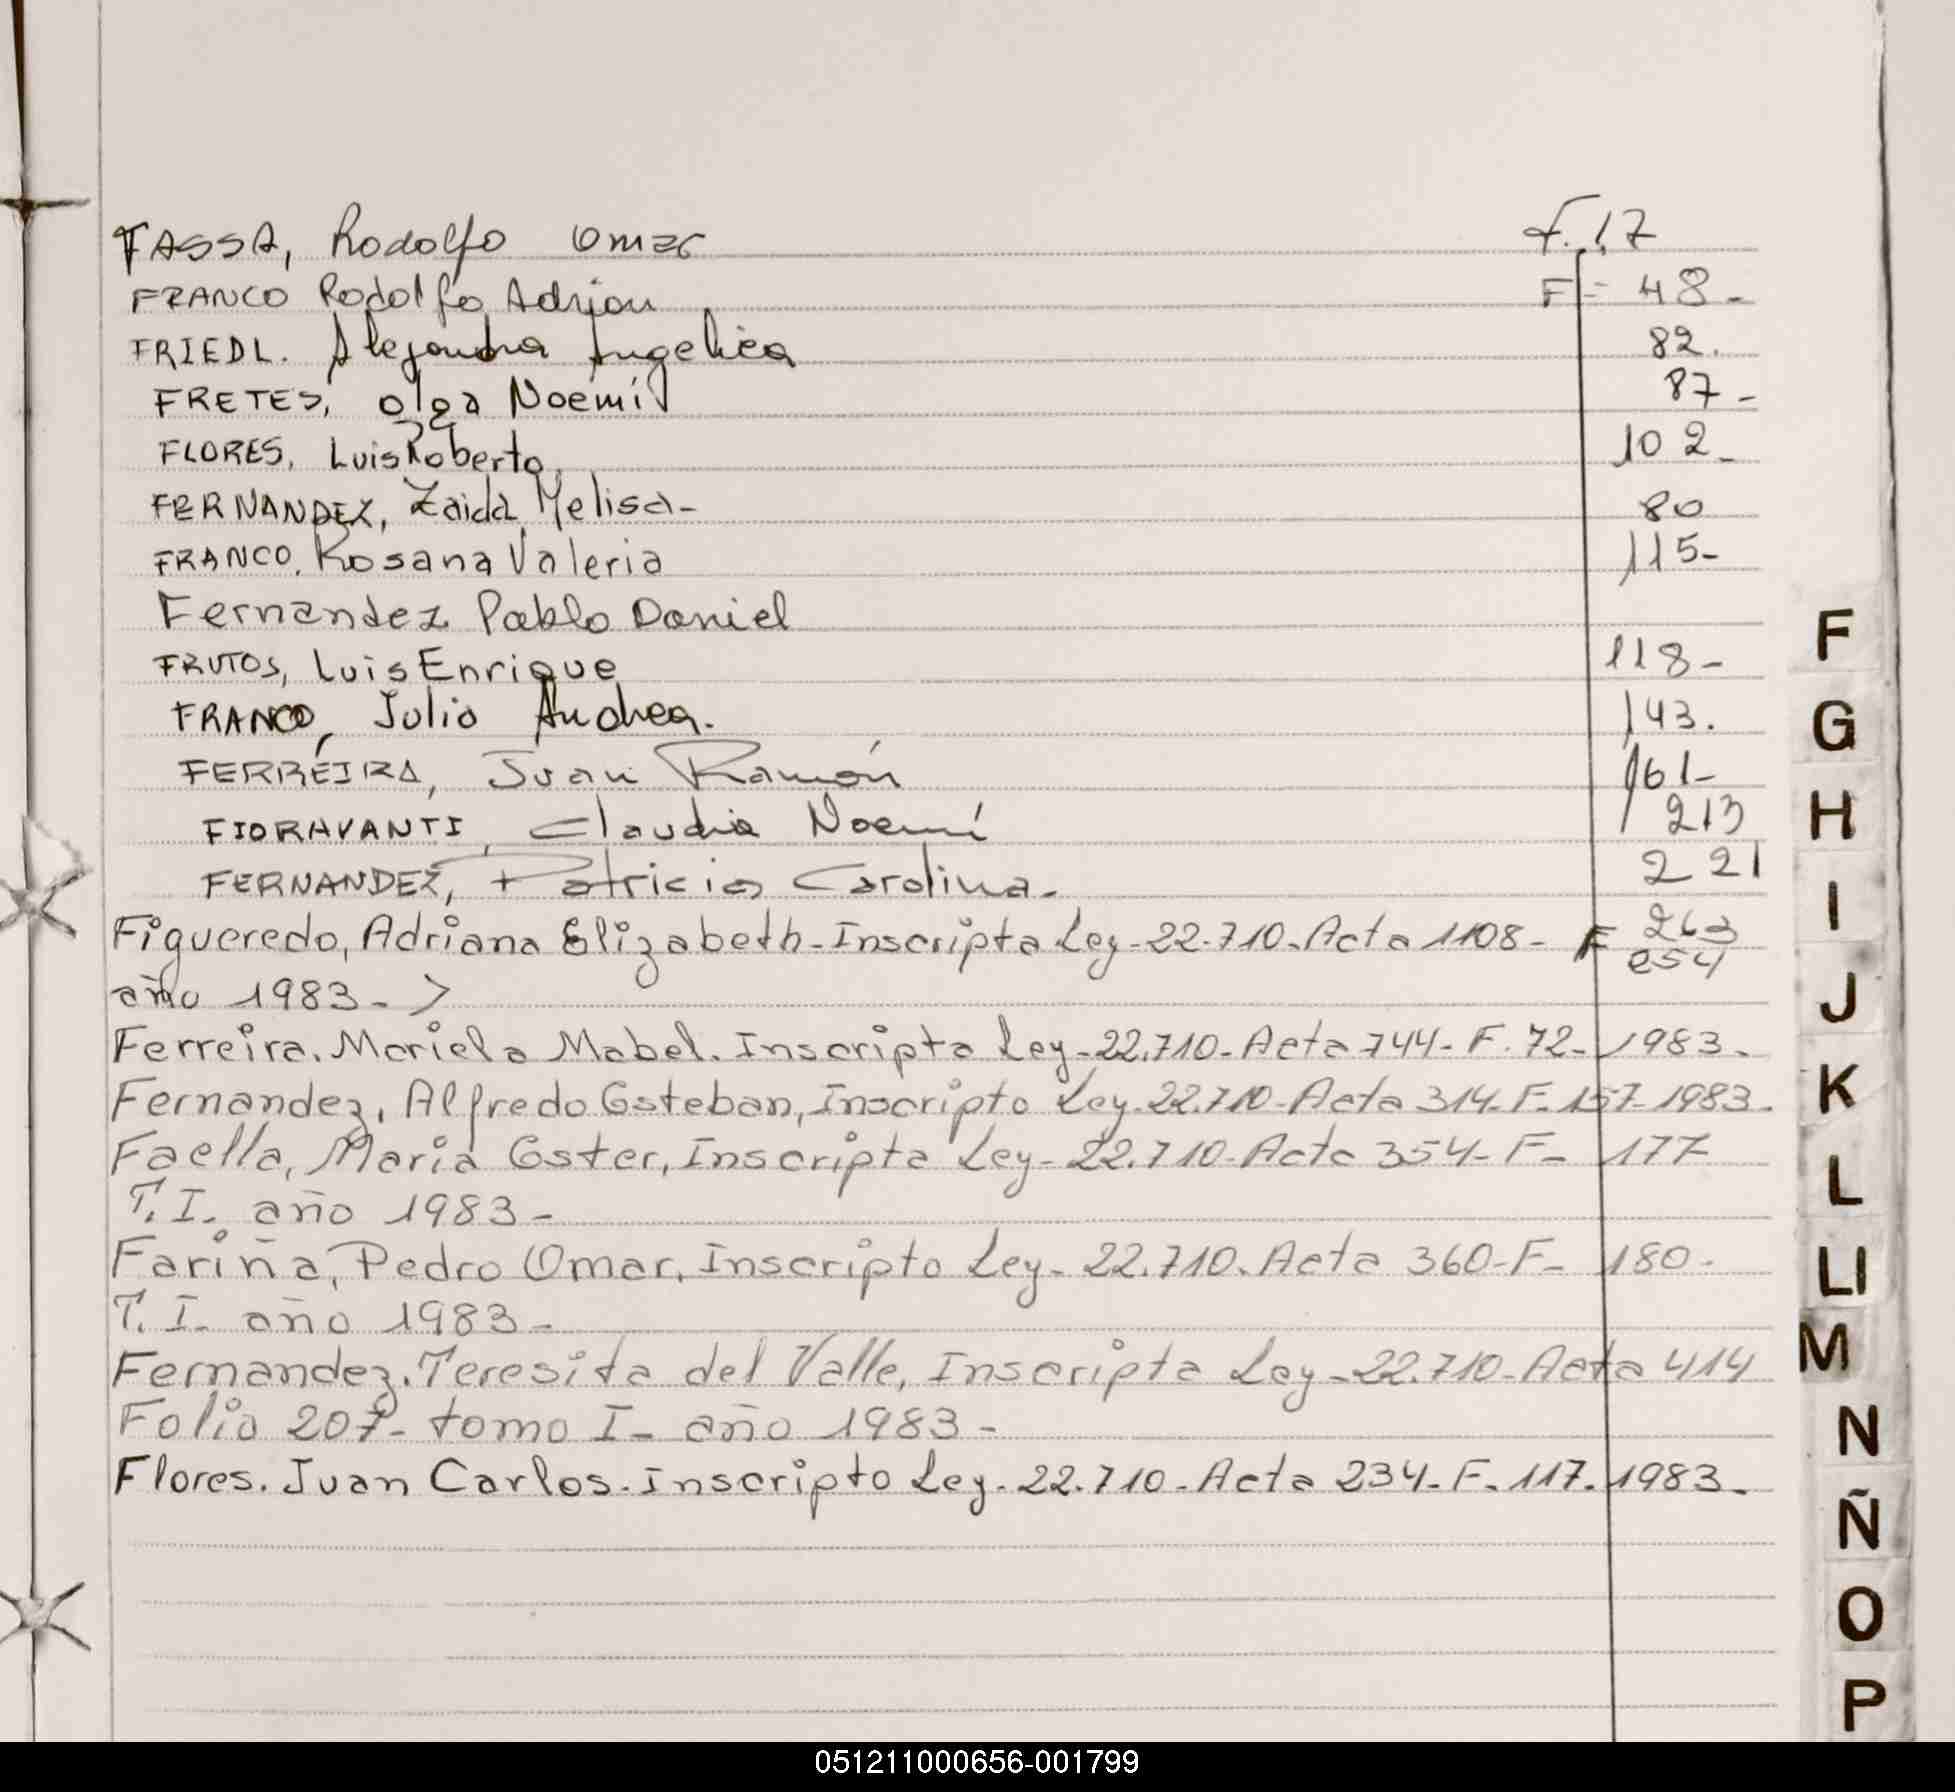 FASSA, Rodolfo Omar F. 17
FRANCO Rodolfo Adrian F= 48-
FRIEDL. Alejandra Angelica 82.
FRETES, Olga Noemí 87-
FLORES, Luis Roberto 102-
FERNANDEZ, Zaida Melisa- 80
FRANCO, Rosana Valeria 115-
Fernandez Pablo Daniel
FRUTOS, Luis Enrique 118-
FRANCO, Julio Andrea. 143.
FERREIRA, Juan Ramón 161-
FIORAVANTI, Claudia Noemí 213
FERNANDEZ, Patricia Carolina. 221
Figueredo, Adriana Elizabeth-Inscripta Ley-22.710-Acta 1108- F 263
254
año 1983->
Ferreira. Mariela Mabel. Inscripta Ley-22.710-Acta 744-F.72-1983-
Fernandez, Alfredo Esteban, Inscripto Ley-22.710-Acta 314-F-157-1983-
Faella, Maria Ester, Inscripta Ley-22.710-Acta 354-F- 177
T.I. año 1983-
Fariña, Pedro Omar, Inscripto Ley-22.710-Acta 360-F- 180-
T.I. año 1983-
Fernandez, Teresita del Valle, Inscripta Ley-22.710-Acta 414
Folio 207- tomo I- año 1983-
Flores. Juan Carlos-Inscripto Ley-22.710-Acta 234-F-117-1983-
F
G
H
I
J
K
L
Ll
M
N
Ñ
O
P
051211000656-001799